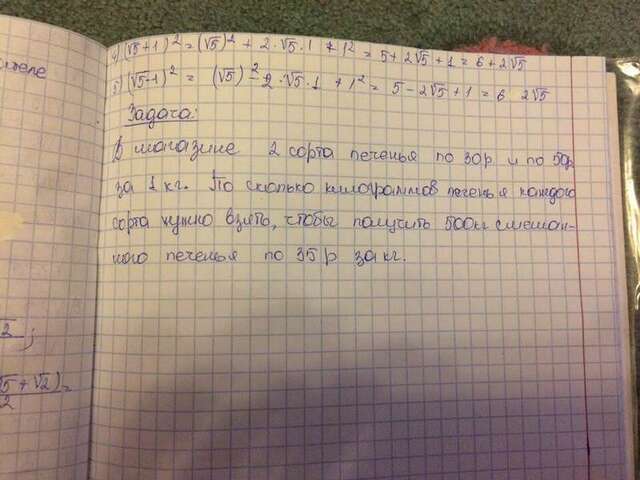 ителе
4) (√5+1)² = (√5)² + 2·√5·1 + 1² = 5+2√5+1 = 6+2√5
5) (√5-1)² = (√5)² - 2·√5·1 + 1² = 5-2√5+1 = 6 2√5
Задача:
В магазине 2 сорта печенья по 30р и по 50р
за 1 кг. По сколько килограммов печенья каждого
сорта нужно взять, чтобы получить 500кг смешан-
ного печенья по 35р за кг.
√2;
√5+√2) =
2